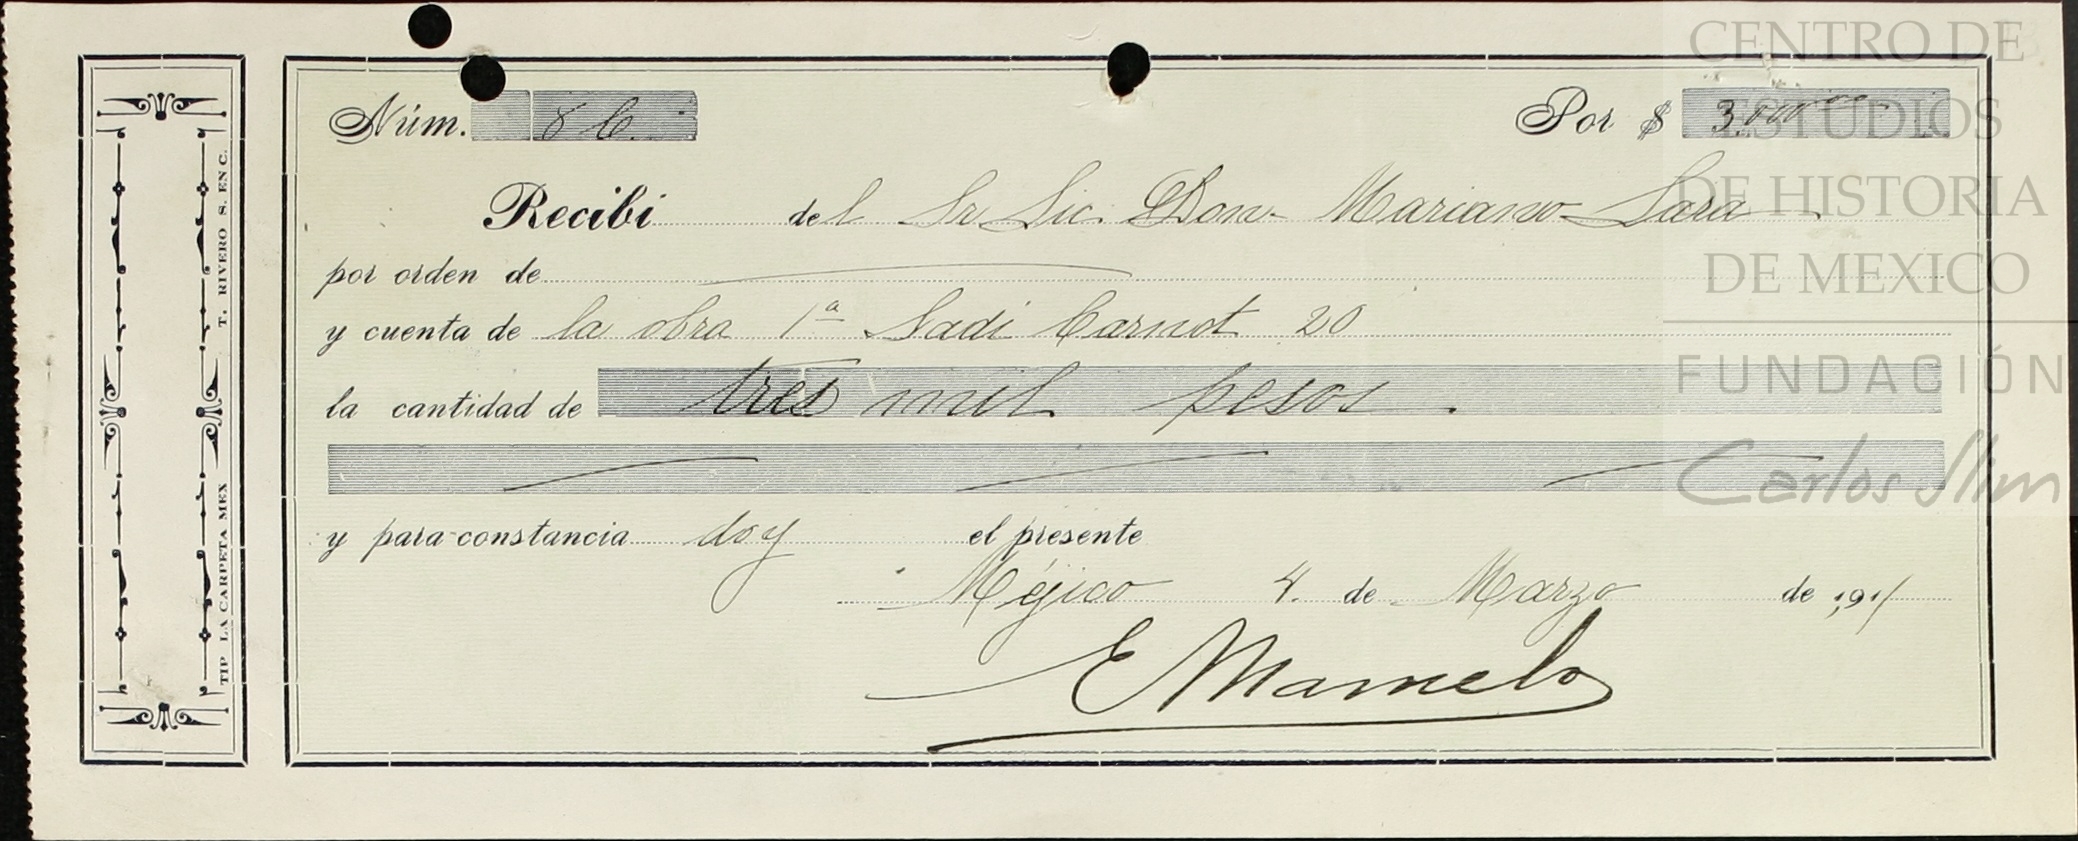 Núm. 86. Por $ 3.000⁰⁰
Recibí del Sr Lic. Don Mariano Lara
por orden de
y cuenta de la obra 1ª Sadi Carnot 20
la cantidad de tres mil pesos.
y para constancia doy el presente
Méjico 4 de Marzo de 1911
E Mamelo
TIP LA CARPETA MEX T. RIVERO S. EN C.
CENTRO DE
ESTUDIOS
DE HISTORIA
DE MEXICO
FUNDACIÓN
Carlos Slim